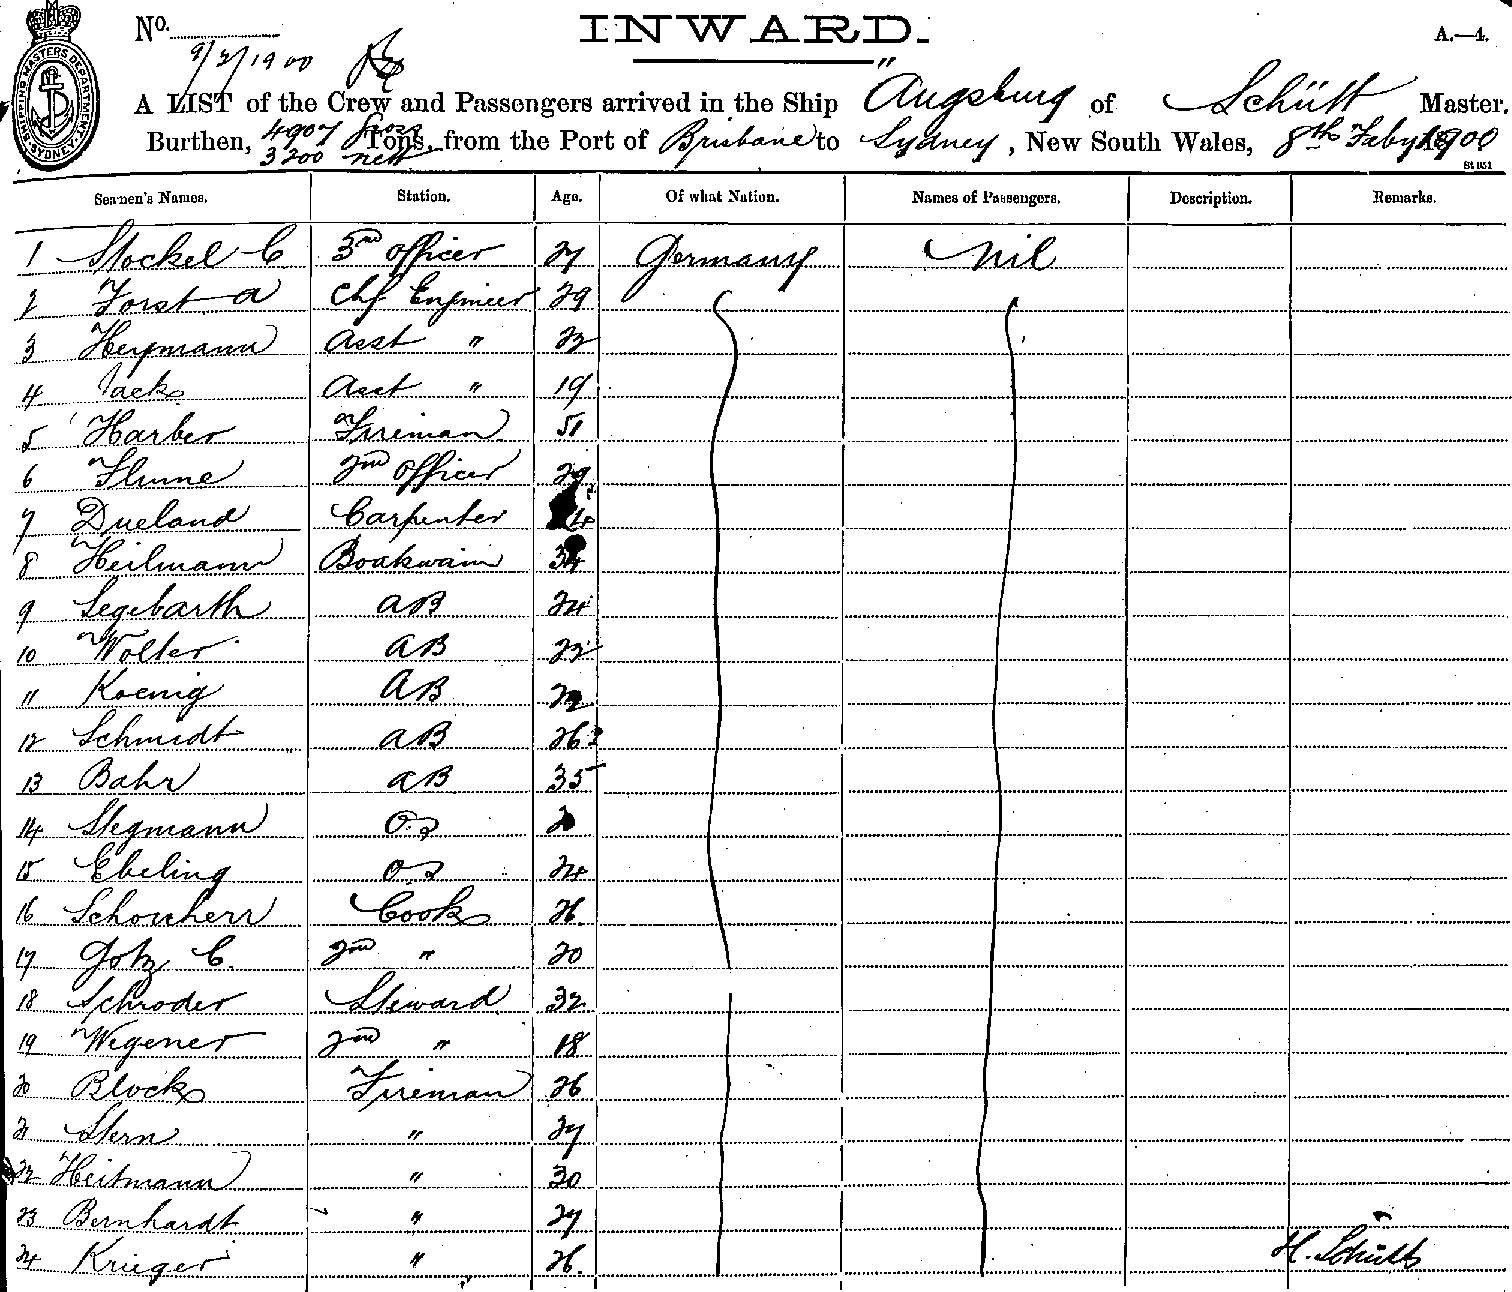 No.
INWARD.
A.—4.
9/2/1900
A LIST of the Crew and Passengers arrived in the Ship "Augsburg of Schütt Master,
Burthen, 4907 Gross Tons, from the Port of Brisbane to Sydney, New South Wales, 8th Feby 1900
3200 nett
St 051
SHIPPING MASTERS DEPARTMENT SYDNEY
Seamen's Names. Station. Age. Of what Nation. Names of Passengers. Description. Remarks.
1 Stockel C 3rd Officer 27 Germany Nil
2 Forst A Chf Engineer 29
3 Heymann Asst " 22
4 Jacks Asst " 19
5 Harber Fireman 51
6 Flume 2nd Officer 29
7 Dueland Carpenter
8 Heilmann Boatswain 34
9 Segebarth AB 24
10 Wolter AB 22
11 Koenig AB 22
12 Schmidt AB 26
13 Bahr AB 35
14 Stegmann OS
15 Ebeling OS 24
16 Schonherr Cook 26
17 Gotz C. 2nd " 20
18 Schroder Steward 32
19 Wegener 2nd " 18
20 Block Fireman 26
21 Stern " 27
22 Heitmann " 30
23 Bernhardt " 27
24 Krieger " 26.
H. Schütt